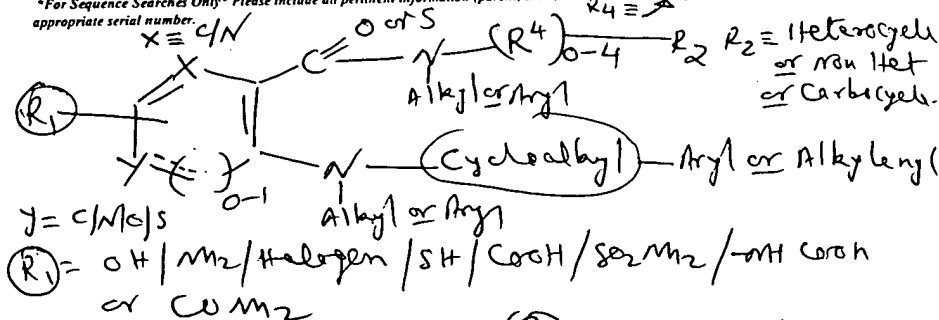 *For Sequence Searches Only* Please include all pertinent information
appropriate serial number.
R4 ≡
X ≡ C/N
O or S
X
C
N
(R4)0-4
R2
R2 ≡ Heterocycle
or Non Het
or Carbocycle.
Alkyl or Aryl
R1
Y
( )0-1
N
Cycloalkyl
Aryl or Alkylenyl
Alkyl or Aryl
Y = C/N/O/S
R1 = OH / NH2 / Halogen / SH / COOH / SO2NH2 / -NH COOH
or CONH2